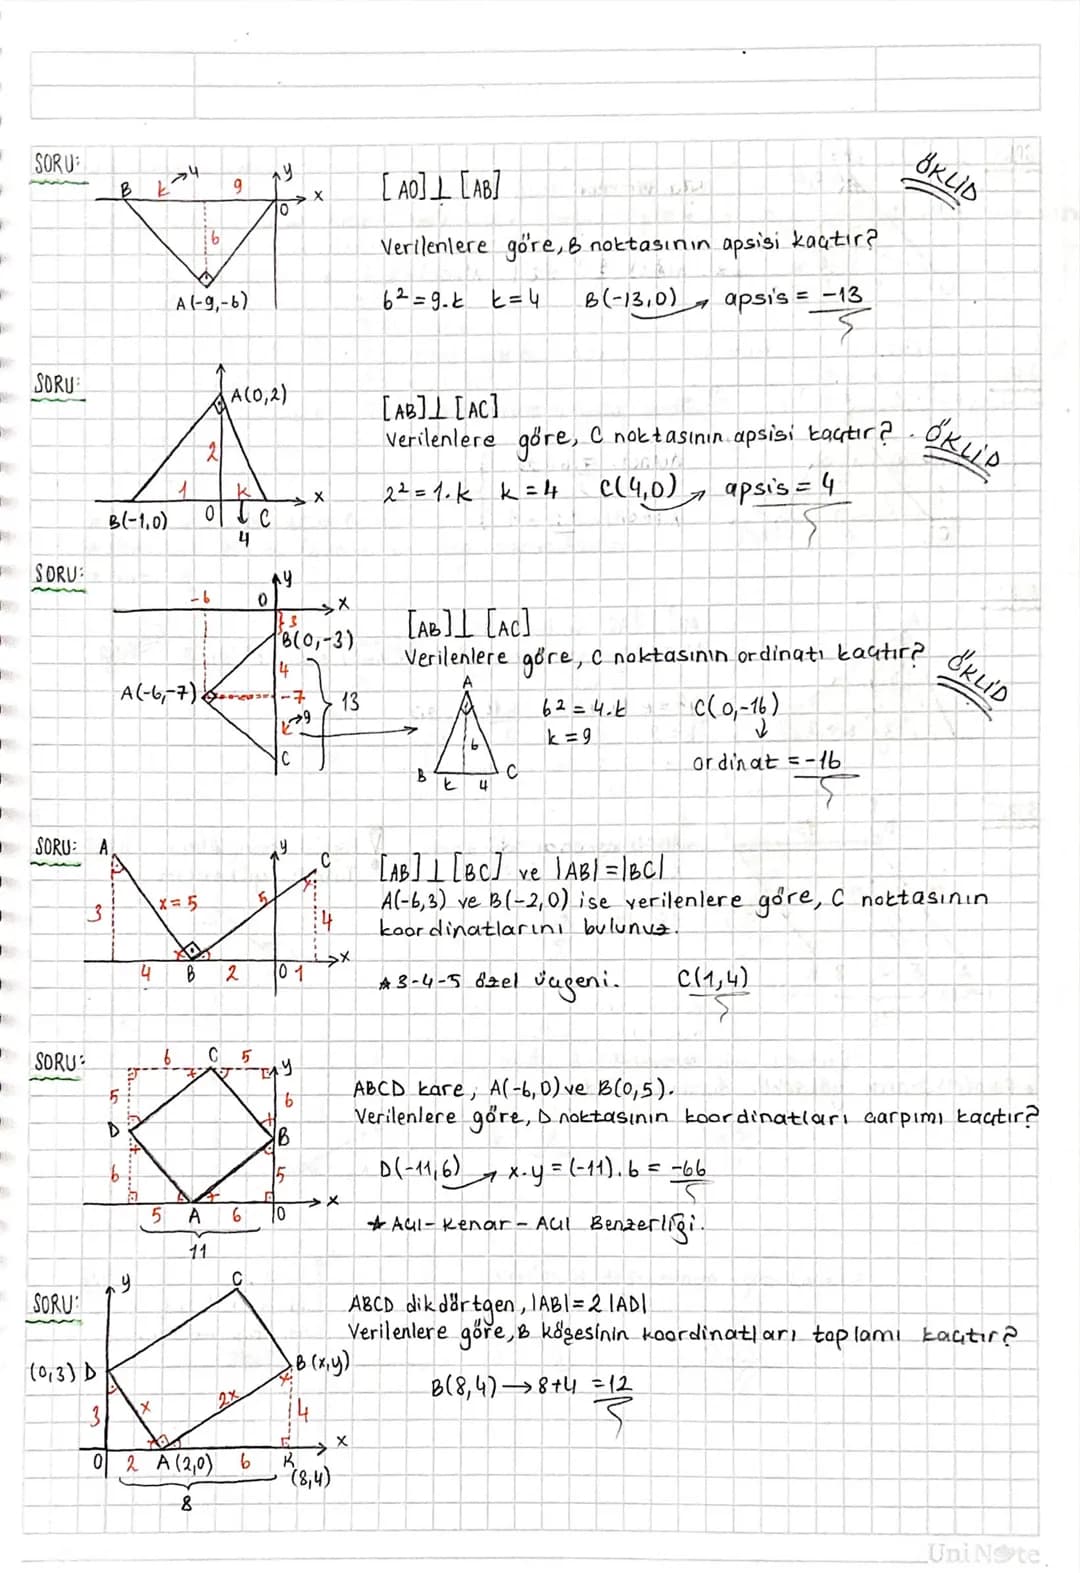 SORU:
B k→4 9 y
x
O
6
A(-9,-6)
[AO]⊥[AB]
ÖKLİD
Verilenlere göre, B noktasının apsisi kaçtır?
6²=9.k k=4 B(-13,0) → apsis = -13
SORU:
A(0,2)
2
1 k x
B(-1,0) O ↓ C
4
[AB]⊥[AC]
Verilenlere göre, C noktasının apsisi kaçtır? ÖKLİD
2²=1.k k=4 C(4,0) → apsis = 4
SORU:
y
-6 O x
3
B(0,-3)
4
A(-6,-7) -7 13
k→9
C
[AB]⊥[AC]
Verilenlere göre, C noktasının ordinatı kaçtır?
ÖKLİD
A
6
B C
k 4
6²=4.k C(0,-16)
k=9 ↓
ordinat = -16
SORU: A y C
3 x=5 5 4
x
4 B 2 0 1
[AB]⊥[BC] ve |AB|=|BC|
A(-6,3) ve B(-2,0) ise verilenlere göre, C noktasının
koordinatlarını bulunuz.
★3-4-5 özel üçgeni. C(1,4)
SORU:
6 C 5 y
5 6
D B
6 5
x
5 A 6 0
11
ABCD kare, A(-6,0) ve B(0,5).
Verilenlere göre, D noktasının koordinatları çarpımı kaçtır?
D(-11,6) → x.y=(-11).6 = -66
★ Açı-Kenar-Açı Benzerliği.
SORU:
y C
(0,3) D B(x,y)
3 x 2x 4
x
0 2 A(2,0) 6 K
(8,4)
8
ABCD dikdörtgen, |AB|=2|AD|
Verilenlere göre, B köşesinin koordinatları toplamı kaçtır?
B(8,4)→8+4 =12
UniNote